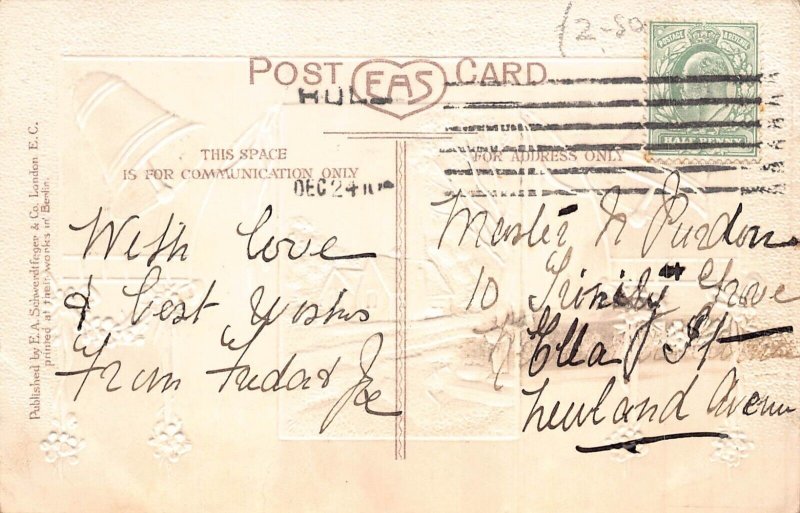 2-50
POST EAS CARD
HULL
DEC 24 10
POSTAGE & REVENUE
HALFPENNY
THIS SPACE
IS FOR COMMUNICATION ONLY
FOR ADDRESS ONLY
Published by E.A. Schwerdtfeger & Co. London E.C.
printed at their works in Berlin.
With love
& best wishes
From Freda & Joe
Master N Purdon
10 Trinity Grove
Ella St
Newland Avenue